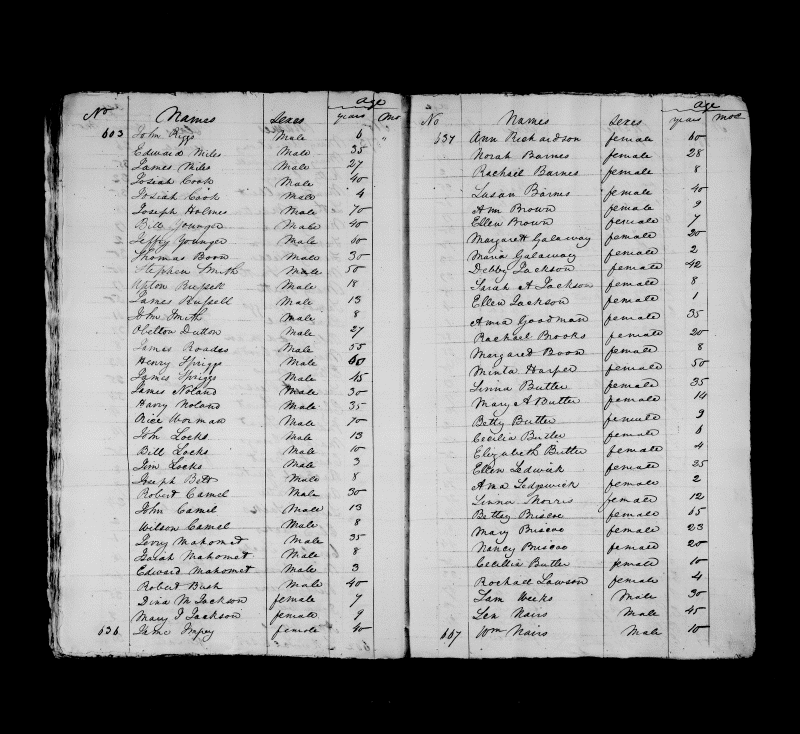 age
No Names Sexes years Mo
603 John Riggs Male 6 "
Edward Miles Male 35
James Miles Male 27
Josiah Cook Male 40
Josiah Cook Male 4
Joseph Holmes Male 70
Bill Younger Male 40
Jeffry Younger Male 60
Thomas Boon Male 30
Stephen Smith Male 50
Upton Russell Male 18
James Russell Male 13
John Smith Male 8
Obelton Dutton Male 27
James Roades Male 55
Henry Spriggs Male 60
James Spriggs Male 45
James Noland Male 30
Harry Noland Male 35
Rice Worman Male 70
John Locks Male 13
Bill Locks Male 10
Jim Locks Male 3
Joseph Bett Male 8
Robert Camel Male 30
John Camel Male 13
Wilson Camel Male 8
Perry Mahomet Male 35
Isaiah Mahomet Male 8
Edward Mahomet Male 3
Robert Bush Male 40
Dina M Jackson female 7
Mary J Jackson female 9
636 female 40
age
No Names Sexes years mos
637 Ann Richardson female 60
Norah Barnes female 28
Rachael Barnes female 8
Susan Barnes female 40
Ann Brown female 9
Ellen Brown female 7
Margarett Galaway female 20
Maria Galaway female 2
Debby Jackson female 42
Sarah A Jackson female 8
Ellen Jackson female 1
Ama Goodman female 35
Rachael Brooks female 20
Margaret Boon female 8
Minta Harper female 50
Linna Butler female 35
Mary A Butler female 14
Betty Butler female 9
Cecilia Butler female 6
Elizabeth Butler female 4
Ellen Ledwick female 35
Ama Ledgwick female 2
Linna Norris female 12
Bettey Briscoe female 65
Mary Briscoe female 23
Nancy Briscoe female 20
Cecillia Butler female 10
Rachael Lawson female 4
Sam Weeks Male 30
Len Nairs Male 45
667 Wm Nairs Male 10